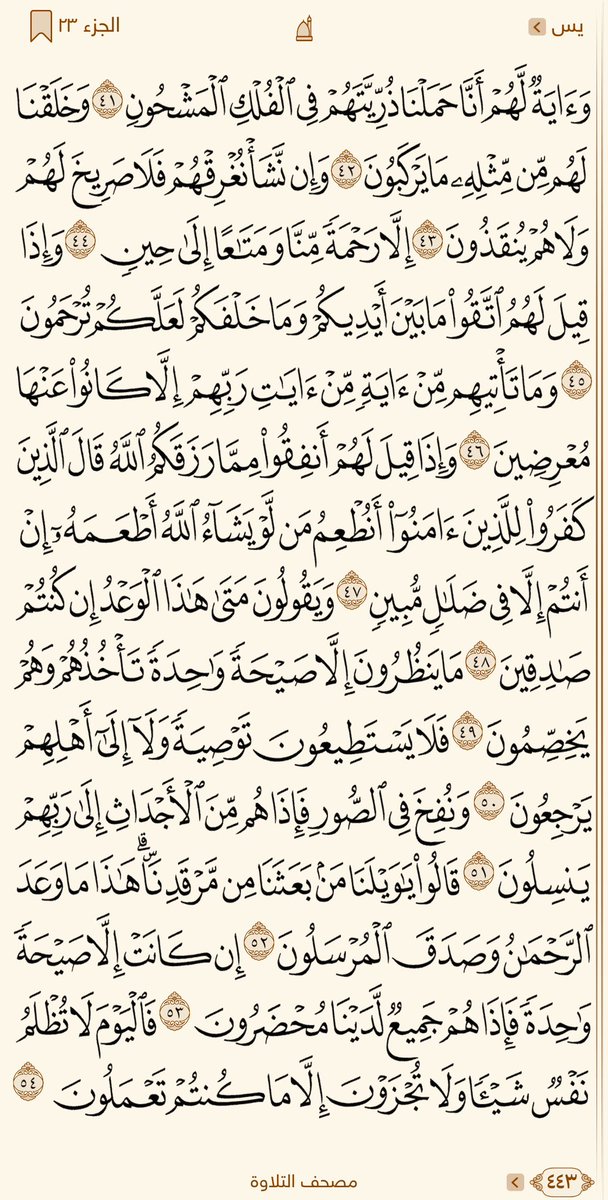 يس
الجزء ٢٣
وَءَايَةٌ لَّهُمْ أَنَّا حَمَلْنَا ذُرِّيَّتَهُمْ فِى ٱلْفُلْكِ ٱلْمَشْحُونِ ٤١ وَخَلَقْنَا
لَهُم مِّن مِّثْلِهِۦ مَا يَرْكَبُونَ ٤٢ وَإِن نَّشَأْ نُغْرِقْهُمْ فَلَا صَرِيخَ لَهُمْ
وَلَا هُمْ يُنقَذُونَ ٤٣ إِلَّا رَحْمَةً مِّنَّا وَمَتَـٰعًا إِلَىٰ حِينٍ ٤٤ وَإِذَا
قِيلَ لَهُمُ ٱتَّقُوا۟ مَا بَيْنَ أَيْدِيكُمْ وَمَا خَلْفَكُمْ لَعَلَّكُمْ تُرْحَمُونَ
٤٥ وَمَا تَأْتِيهِم مِّنْ ءَايَةٍ مِّنْ ءَايَـٰتِ رَبِّهِمْ إِلَّا كَانُوا۟ عَنْهَا
مُعْرِضِينَ ٤٦ وَإِذَا قِيلَ لَهُمْ أَنفِقُوا۟ مِمَّا رَزَقَكُمُ ٱللَّهُ قَالَ ٱلَّذِينَ
كَفَرُوا۟ لِلَّذِينَ ءَامَنُوٓا۟ أَنُطْعِمُ مَن لَّوْ يَشَآءُ ٱللَّهُ أَطْعَمَهُۥٓ إِنْ
أَنتُمْ إِلَّا فِى ضَلَـٰلٍ مُّبِينٍ ٤٧ وَيَقُولُونَ مَتَىٰ هَـٰذَا ٱلْوَعْدُ إِن كُنتُمْ
صَـٰدِقِينَ ٤٨ مَا يَنظُرُونَ إِلَّا صَيْحَةً وَٰحِدَةً تَأْخُذُهُمْ وَهُمْ
يَخِصِّمُونَ ٤٩ فَلَا يَسْتَطِيعُونَ تَوْصِيَةً وَلَآ إِلَىٰٓ أَهْلِهِمْ
يَرْجِعُونَ ٥٠ وَنُفِخَ فِى ٱلصُّورِ فَإِذَا هُم مِّنَ ٱلْأَجْدَاثِ إِلَىٰ رَبِّهِمْ
يَنسِلُونَ ٥١ قَالُوا۟ يَـٰوَيْلَنَا مَنۢ بَعَثَنَا مِن مَّرْقَدِنَا ۜ ۗ هَـٰذَا مَا وَعَدَ
ٱلرَّحْمَـٰنُ وَصَدَقَ ٱلْمُرْسَلُونَ ٥٢ إِن كَانَتْ إِلَّا صَيْحَةً
وَٰحِدَةً فَإِذَا هُمْ جَمِيعٌ لَّدَيْنَا مُحْضَرُونَ ٥٣ فَٱلْيَوْمَ لَا تُظْلَمُ
نَفْسٌ شَيْـًٔا وَلَا تُجْزَوْنَ إِلَّا مَا كُنتُمْ تَعْمَلُونَ ٥٤
٤٤٣
مصحف التلاوة